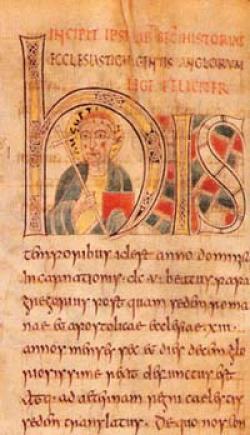 INCIPIT IPSIUS LIB SEC HISTORIAE
ECCLESIASTICAE GENTIS ANGLORUM
LEGE FELICITER
his
temporibus id est anno dominicae
incarnationis dc v beatus papa
gregorius post quam sedem roma
nae et apostolicae ecclesiae xiii
annos menses sex et dies decem glo
riosissime rexit defunctus est
atq; ad aeternam regni caelestis
sedem translatus. De quo nos